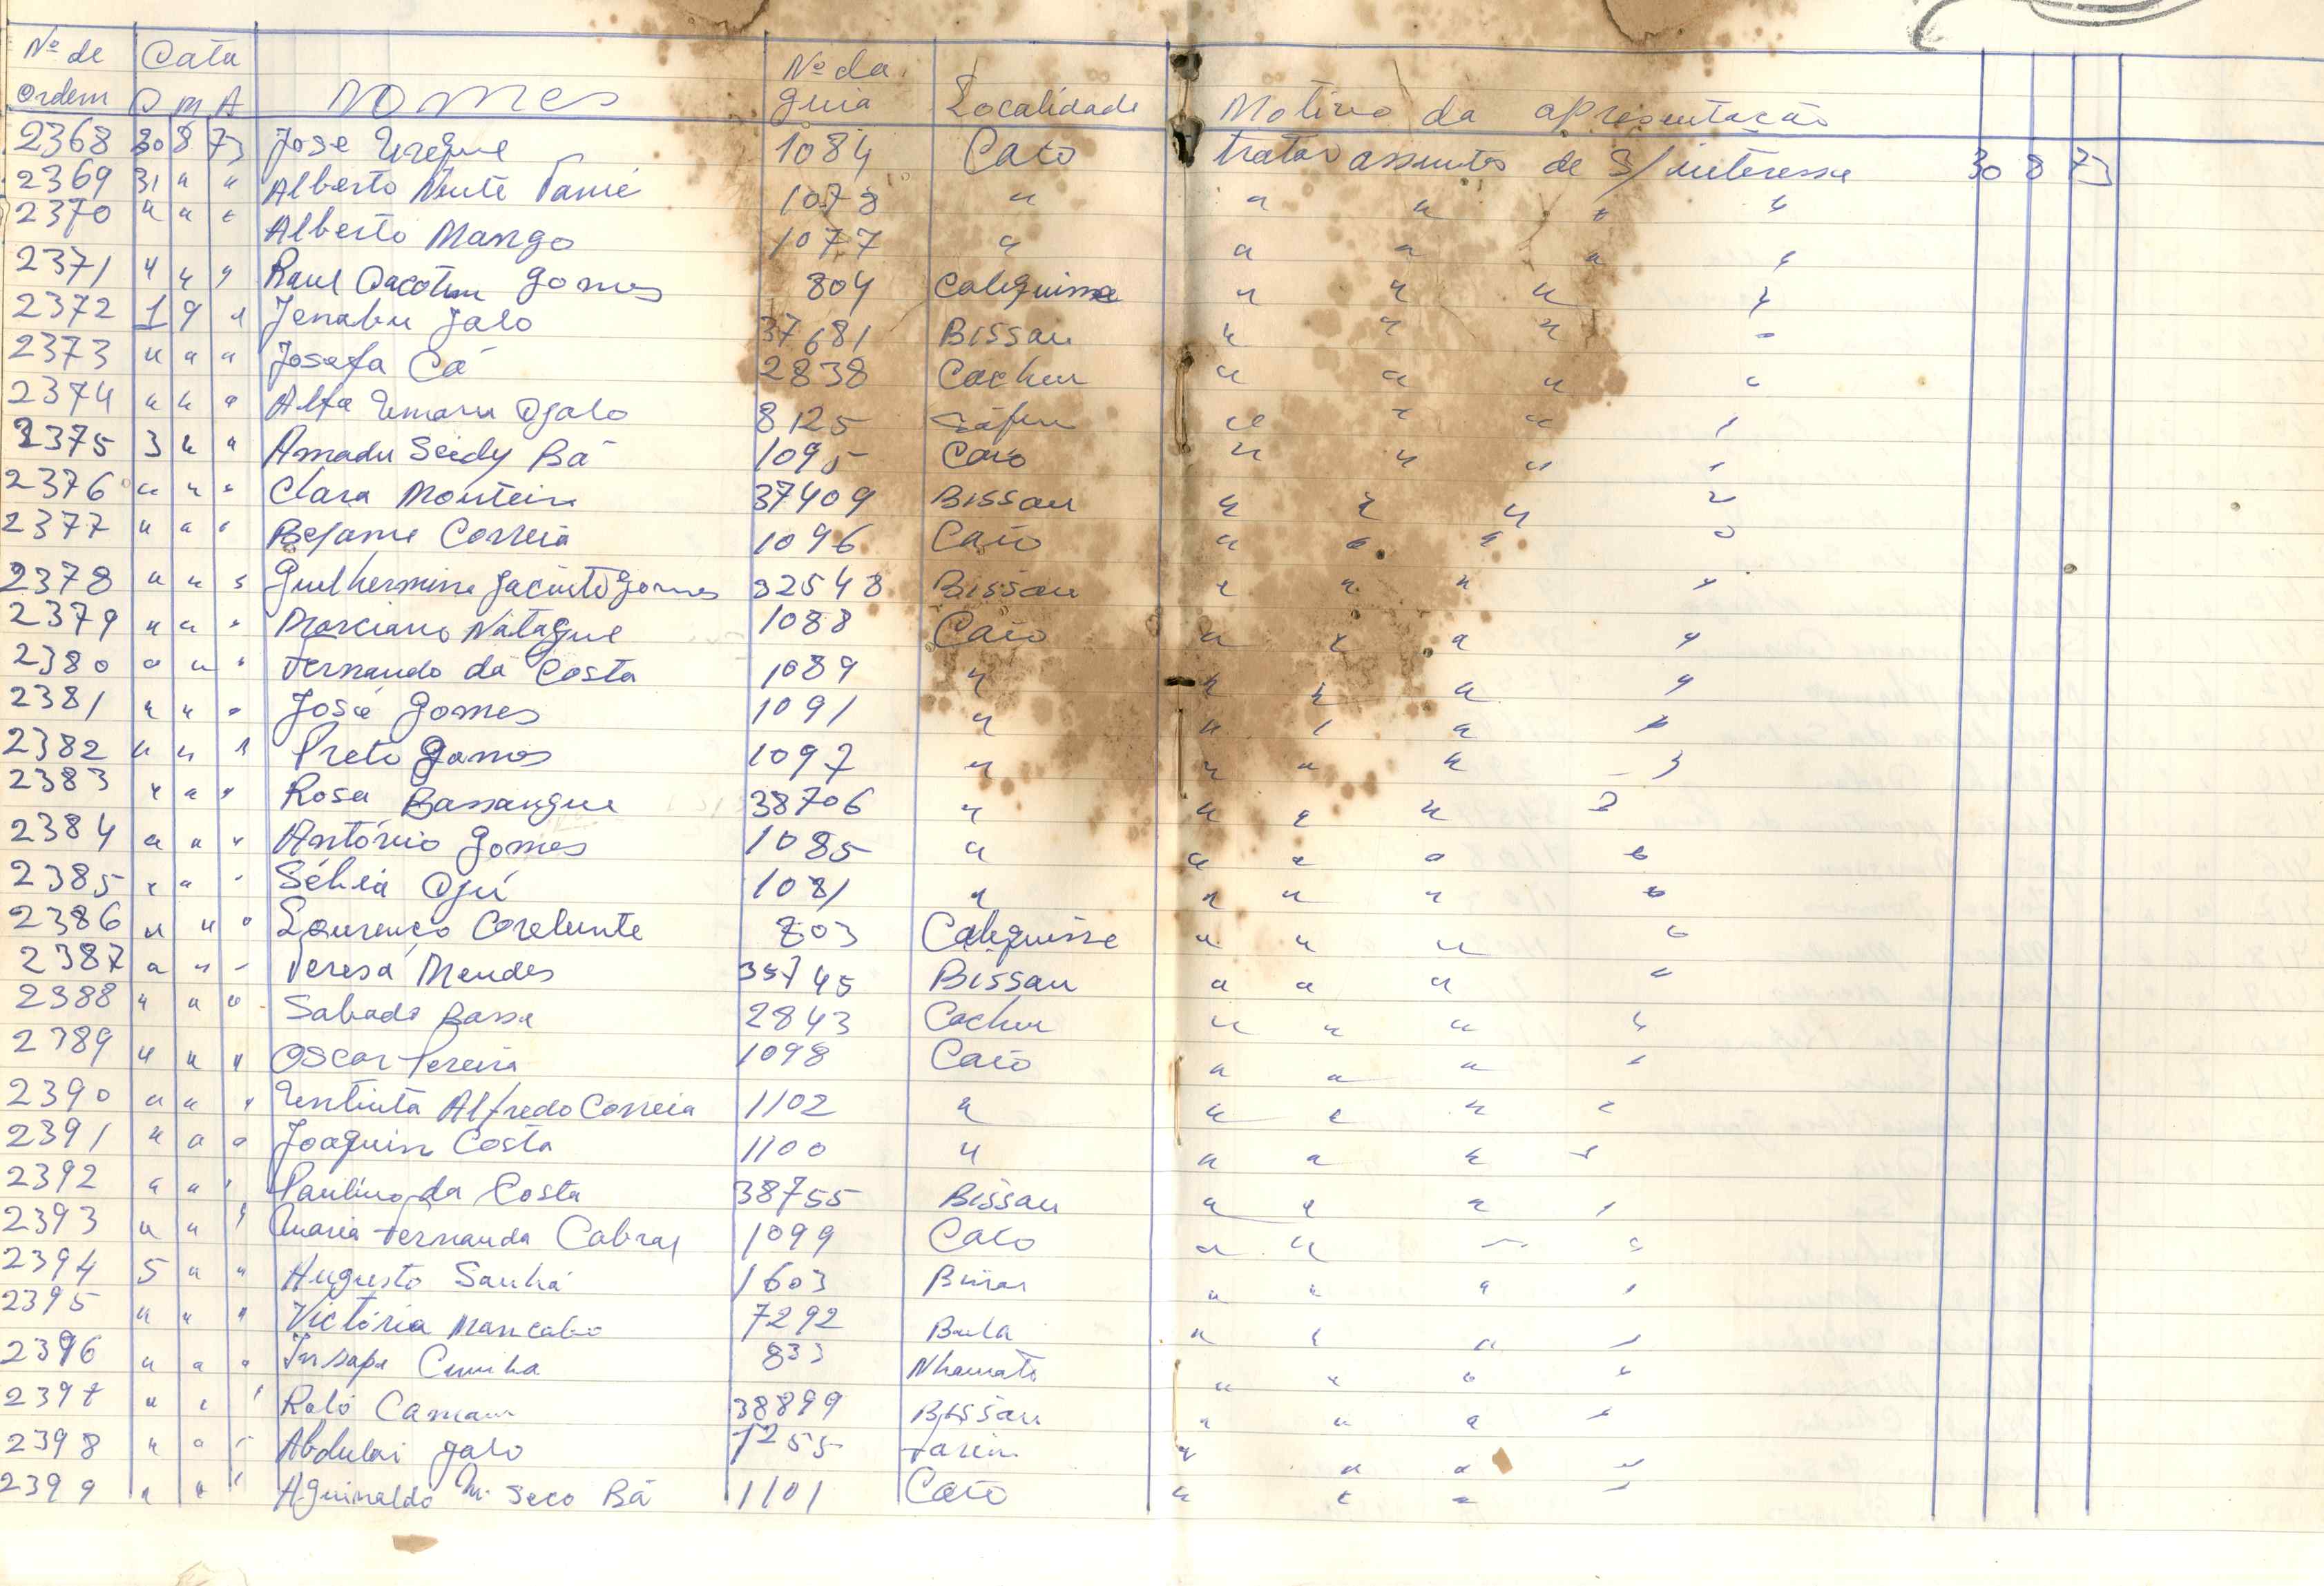 Nº de Data Nº da
Ordem D M A Nomes guia Localidade Motivo da apresentação
2368 30 8 73 José 1084 Caió tratar assunto de S/ interesse 30 8 73
2369 31 " " Alberto 1078 " " " " "
2370 " " " Alberto Mango 1077 " " " " "
2371 " " " Raul Gomes 804 Calequisse " " " "
2372 1 9 " Jenabu Jalo 37681 Bissau " " " "
2373 " " " Josefa Cá 2838 Cacheu " " " "
2374 " " " Alfa Umaru Djalo 8125 " " " "
2375 3 " " Amadu Seidy Bá 1095 Caió " " " "
2376 " " " Clara Monteiro 37409 Bissau " " " "
2377 " " " Correia 1096 Caió " " " "
2378 " " " Guilhermina Jacinto Gomes 32548 Bissau " " " "
2379 " " " Marciano Natague 1088 Caió " " " "
2380 " " " Fernando da Costa 1089 " " " " "
2381 " " " José Gomes 1091 " " " " "
2382 " " " Preto Gomes 1097 " " " " "
2383 " " " Rosa Bassangue 38706 " " " " "
2384 " " " António Gomes 1085 " " " " "
2385 " " " Djú 1081 " " " " "
2386 " " " Lourenço 803 Calequisse " " " "
2387 " " " Teresa Mendes 35745 Bissau " " " "
2388 " " " Sabado Bassa 2843 Cacheu " " " "
2389 " " " Oscar Pereira 1098 Caió " " " "
2390 " " " Alfredo Correia 1102 " " " " "
2391 " " " Joaquim Costa 1100 " " " " "
2392 " " " Paulino da Costa 38755 Bissau " " " "
2393 " " " Maria Fernanda Cabral 1099 Caió " " " "
2394 5 " " Augusto Sanhá 1603 Binar " " " "
2395 " " " Victória Mancabo 7292 Bula " " " "
2396 " " " 833 Nhamate " " " "
2397 " " " Camara 38899 Bissau " " " "
2398 " " " Abdulai Jalo 1255 Farim " " " "
2399 " " " Aguinaldo M. Seco Bá 1101 Caió " " " "